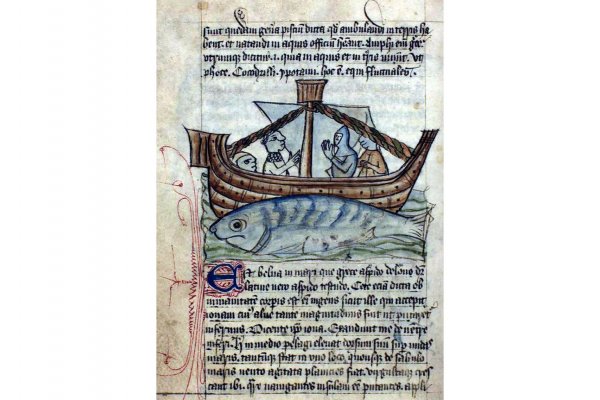 sunt quedam gen̄a pisciū dicta qđ ambulandi in terris ha
bent. et natandi in aquis officiū heant. Amphi em̄ grec̄
utrumque dicitur .i. quia in aquis et in t̄ris uiuūt. ut
phoce. Cocodrilli. ypotami. hoc ē. equi fluctuales.
Est belua in mari que grece aspido delone dr̄
latine uero aspido testudo. Cete etiā dicta ob
inmanitatem corpis est em̄ ingens sicut ille qui accepit
ionam cuiꝰ alue tante magnitudinis fuit ut putaret
infernus. Dicente ip̄o iona. Exaudiuit me de uentre
inferi. h̄ in medio pelagi eleuat dorsum suū suꝑ undas
maris. tantūque stat in uno loco, quousque de sabulo
maris uento agitata planicies fiat. uirgultaque cres
cant ibi. Qr̄e nauigantes insulam eē putantes. appli